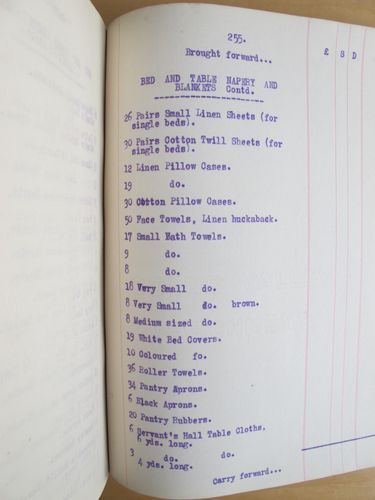 255.
Brought forward... £ S D
BED AND TABLE NAPERY AND
BLANKETS Contd.
26 Pairs Small Linen Sheets (for
single beds).
30 Pairs Cotton Twill Sheets (for
single beds).
12 Linen Pillow Cases.
19 do.
30 Cotton Pillow Cases.
50 Face Towels, Linen huckaback.
17 Small Bath Towels.
9 do.
8 do.
18 Very Small do.
8 Very Small do. brown.
8 Medium sized do.
19 White Bed Covers.
10 Coloured fo.
36 Roller Towels.
34 Pantry Aprons.
6 Black Aprons.
20 Pantry Rubbers.
6 Servant's Hall Table Cloths.
6 yds. long.
3 do. do.
4 yds. long.
Carry forward...